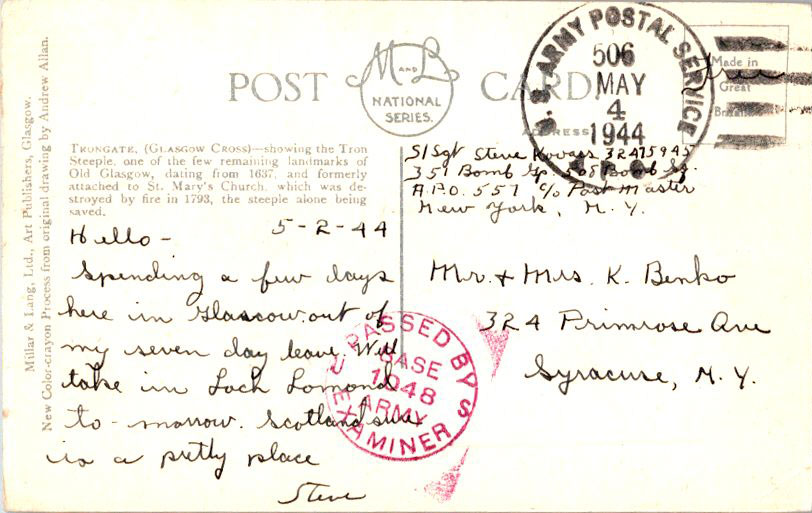 POST CARD
M AND L
NATIONAL
SERIES.
U. S. ARMY POSTAL SERVICE
506
MAY
4
1944
A.P.O.
Made in
Great
Britain
Free
ADDRESS
Millar & Lang, Ltd., Art Publishers, Glasgow.
New Color-crayon Process from original drawing by Andrew Allan.
TRONGATE, (GLASGOW CROSS)—showing the Tron
Steeple, one of the few remaining landmarks of
Old Glasgow, dating from 1637, and formerly
attached to St. Mary's Church, which was de-
stroyed by fire in 1793, the steeple alone being
saved.
S/Sgt Steve Kovacs 32475945
351 Bomb Gp. 508 Bomb Sq.
A.P.O. 557 c/o Post Master
New York, N.Y.
5-2-44
Hello -
Spending a few days
here in Glascow out of
my seven day leave. Will
take in Loch Lomond
to-morrow. Scotland sure
is a pretty place
Steve
Mr. + Mrs. K. Benko
324 Primrose Ave
Syracuse, N.Y.
PASSED BY
BASE
1048
ARMY
EXAMINER
U S